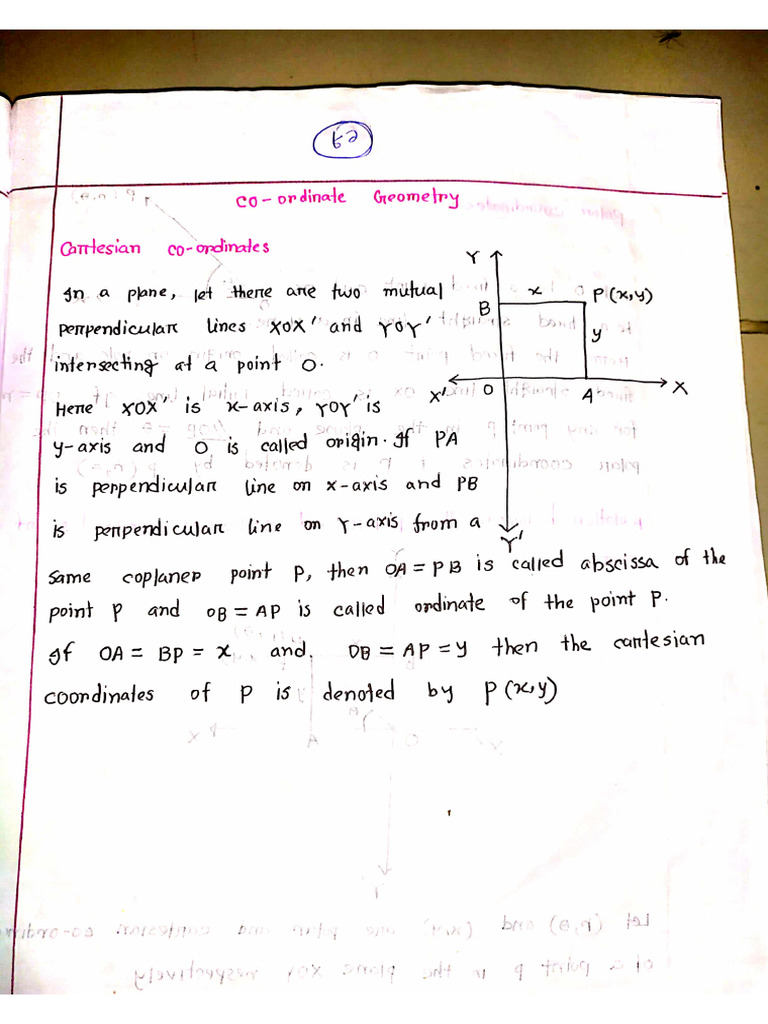 co-ordinate Geometry
Cartesian co-ordinates
In a plane, let there are two mutual
perpendicular lines XOX' and YOY'
intersecting at a point O.
Here XOX' is x-axis, YOY' is
y-axis and O is called origin. If PA
is perpendicular line on x-axis and PB
is perpendicular line on Y-axis from a
same coplaner point P, then OA = PB is called abscissa of the
point P and OB = AP is called ordinate of the point P.
If OA = BP = x and, OB = AP = y then the cartesian
coordinates of P is denoted by P(x,y)
Y
B
x
P(x,y)
y
X'
O
A
X
Y'